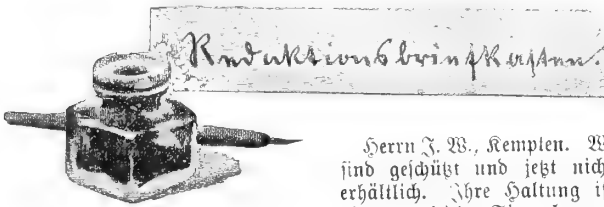 Redaktionsbriefkasten.
Herrn J. W., Kempten. W
sind geschützt und jetzt nich
erhältlich. Ihre Haltung i